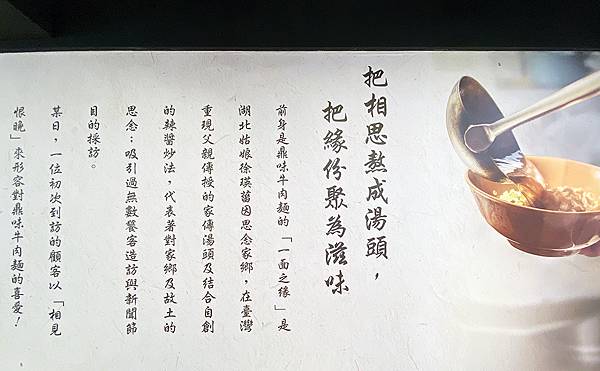 把相思熬成湯頭，
把緣份聚為滋味
前身是鼎味牛肉麵的「一面之緣」是
湖北姑娘徐瑛菖因思念家鄉，在臺灣
重現父親傳授的家傳湯頭及結合自創
的辣醬炒法，代表著對家鄉及故土的
思念；吸引過無數饕客造訪與新聞節
目的採訪。
某日，一位初次到訪的顧客以「相見
恨晚」來形容對鼎味牛肉麵的喜愛！